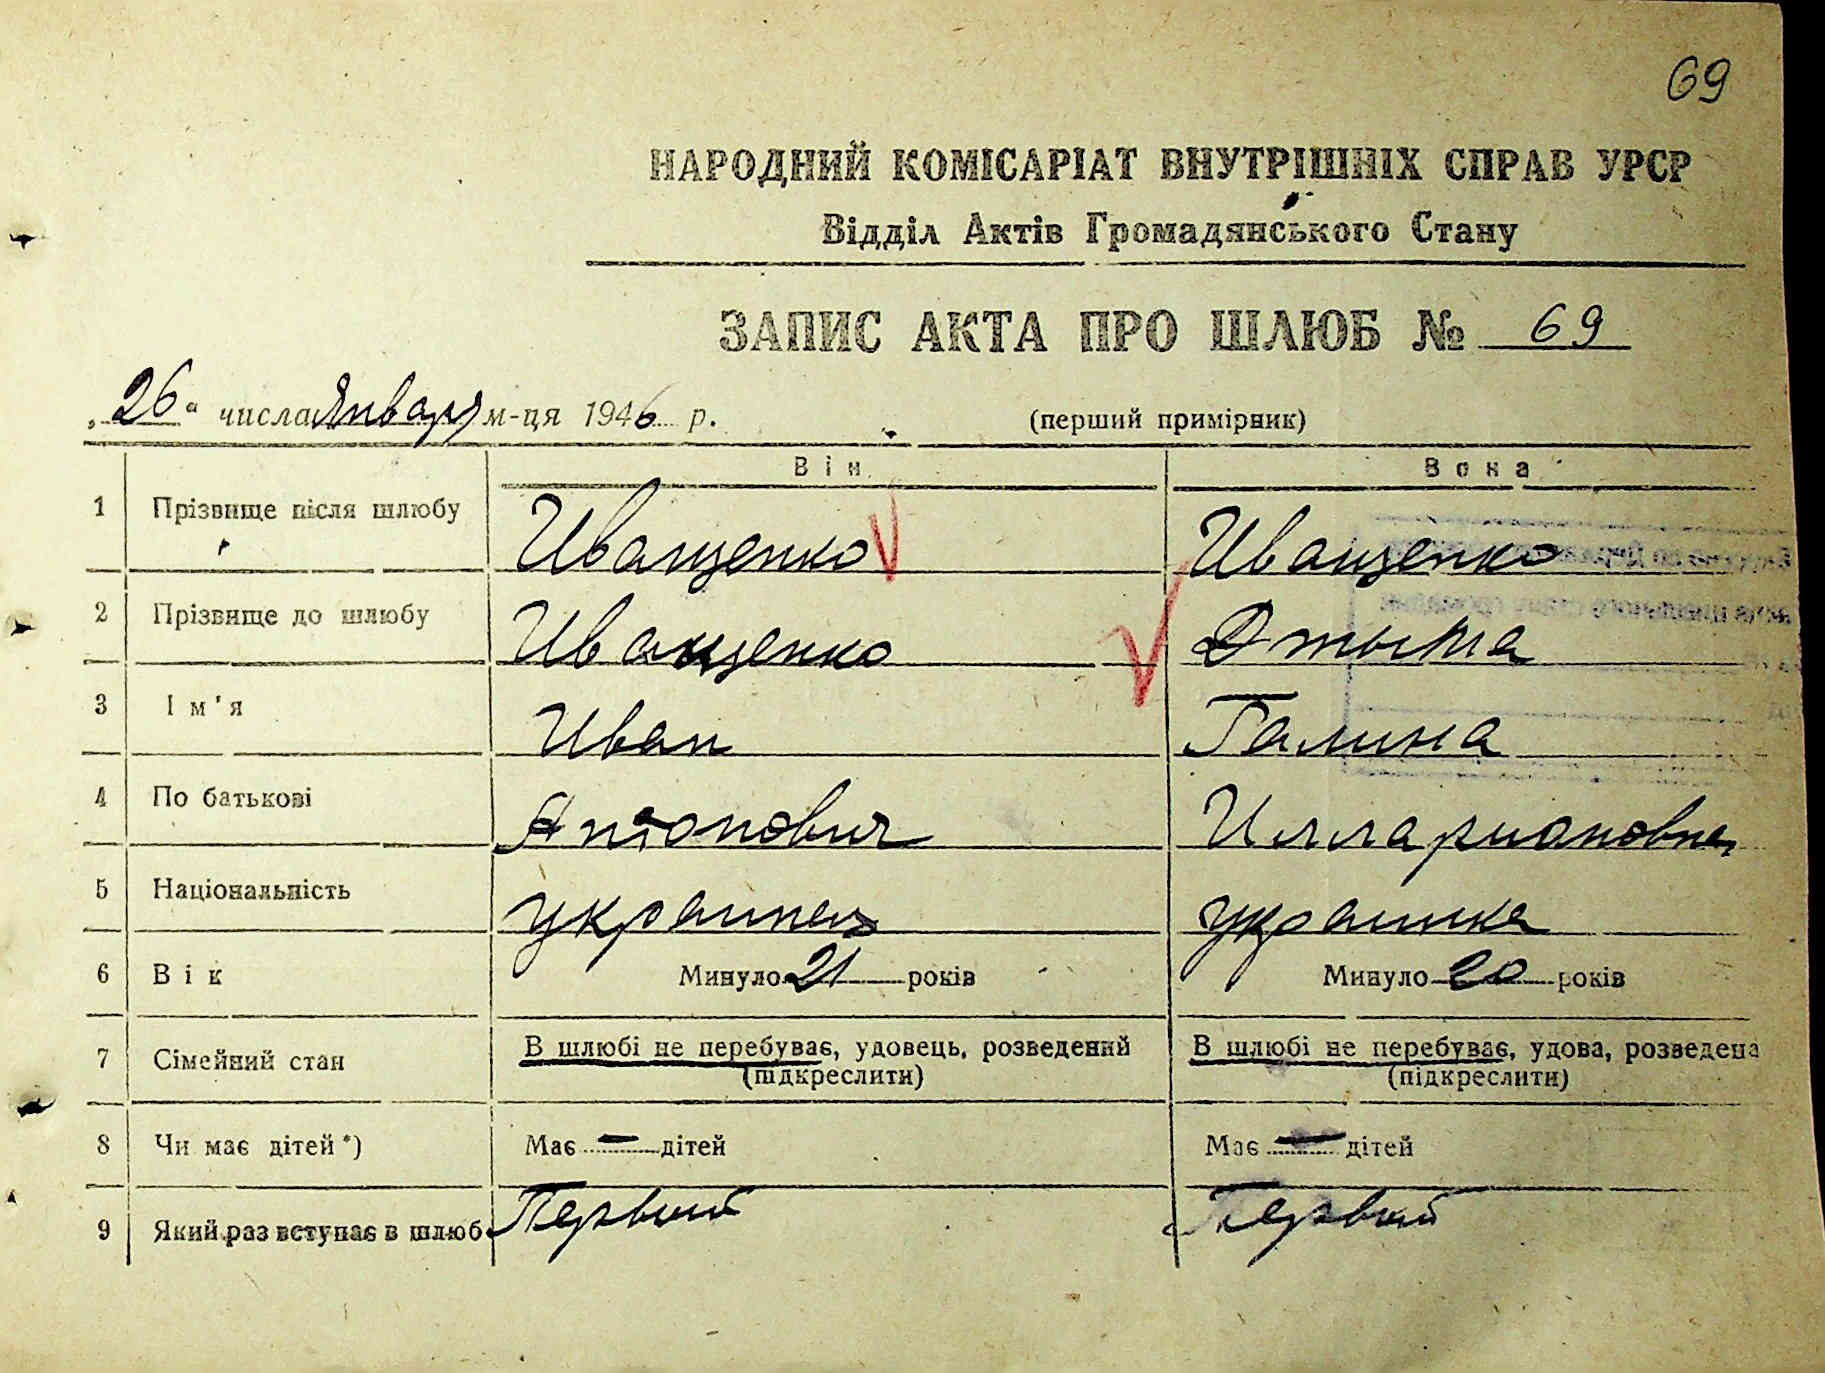 69
НАРОДНИЙ КОМІСАРІАТ ВНУТРІШНІХ СПРАВ УРСР
Відділ Актів Громадянського Стану
ЗАПИС АКТА ПРО ШЛЮБ № 69
„26“ числа Января м-ця 1946 р. (перший примірник)
Він Вона
1 Прізвище після шлюбу Иващенко Иващенко
2 Прізвище до шлюбу Иващенко
3 Ім'я Иван Галина
4 По батькові Антонович Иллариановна
5 Національність украинец украинка
6 Вік Минуло 21 років Минуло 20 років
7 Сімейний стан В шлюбі не перебуває, удовець, розведений В шлюбі не перебуває, удова, розведена
(підкреслити) (підкреслити)
8 Чи має дітей*) Має — дітей Має — дітей
9 Який раз вступає в шлюб Первый Первый